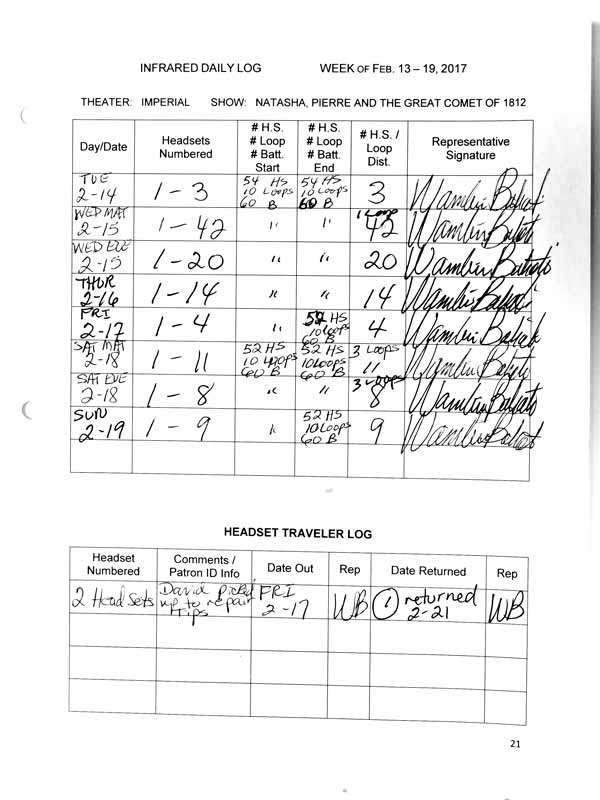 INFRARED DAILY LOG WEEK OF FEB. 13 – 19, 2017
THEATER: IMPERIAL SHOW: NATASHA, PIERRE AND THE GREAT COMET OF 1812
Day/Date Headsets Numbered # H.S. # Loop # Batt. Start # H.S. # Loop # Batt. End # H.S. / Loop Dist. Representative Signature
TUE 2-14 1-3 54 HS 10 Loops 60 B 54 HS 10 Loops 60 B 3
WED MAT 2-15 1-42 " " 1 Loop 42
WED EVE 2-15 1-20 " " 20
THUR 2-16 1-14 " " 14
FRI 2-17 1-4 " 52 HS 10 Loops 60 B 4
SAT MAT 2-18 1-11 52 HS 10 Loops 60 B 52 HS 10 Loops 60 B 3 Loops 11
SAT EVE 2-18 1-8 " " 3 Loops 8
SUN 2-19 1-9 " 52 HS 10 Loops 60 B 9
HEADSET TRAVELER LOG
Headset Numbered Comments / Patron ID Info Date Out Rep Date Returned Rep
2 Head Sets David picked up to repair tips FRI 2-17 WB 1 returned 2-21 WB
21